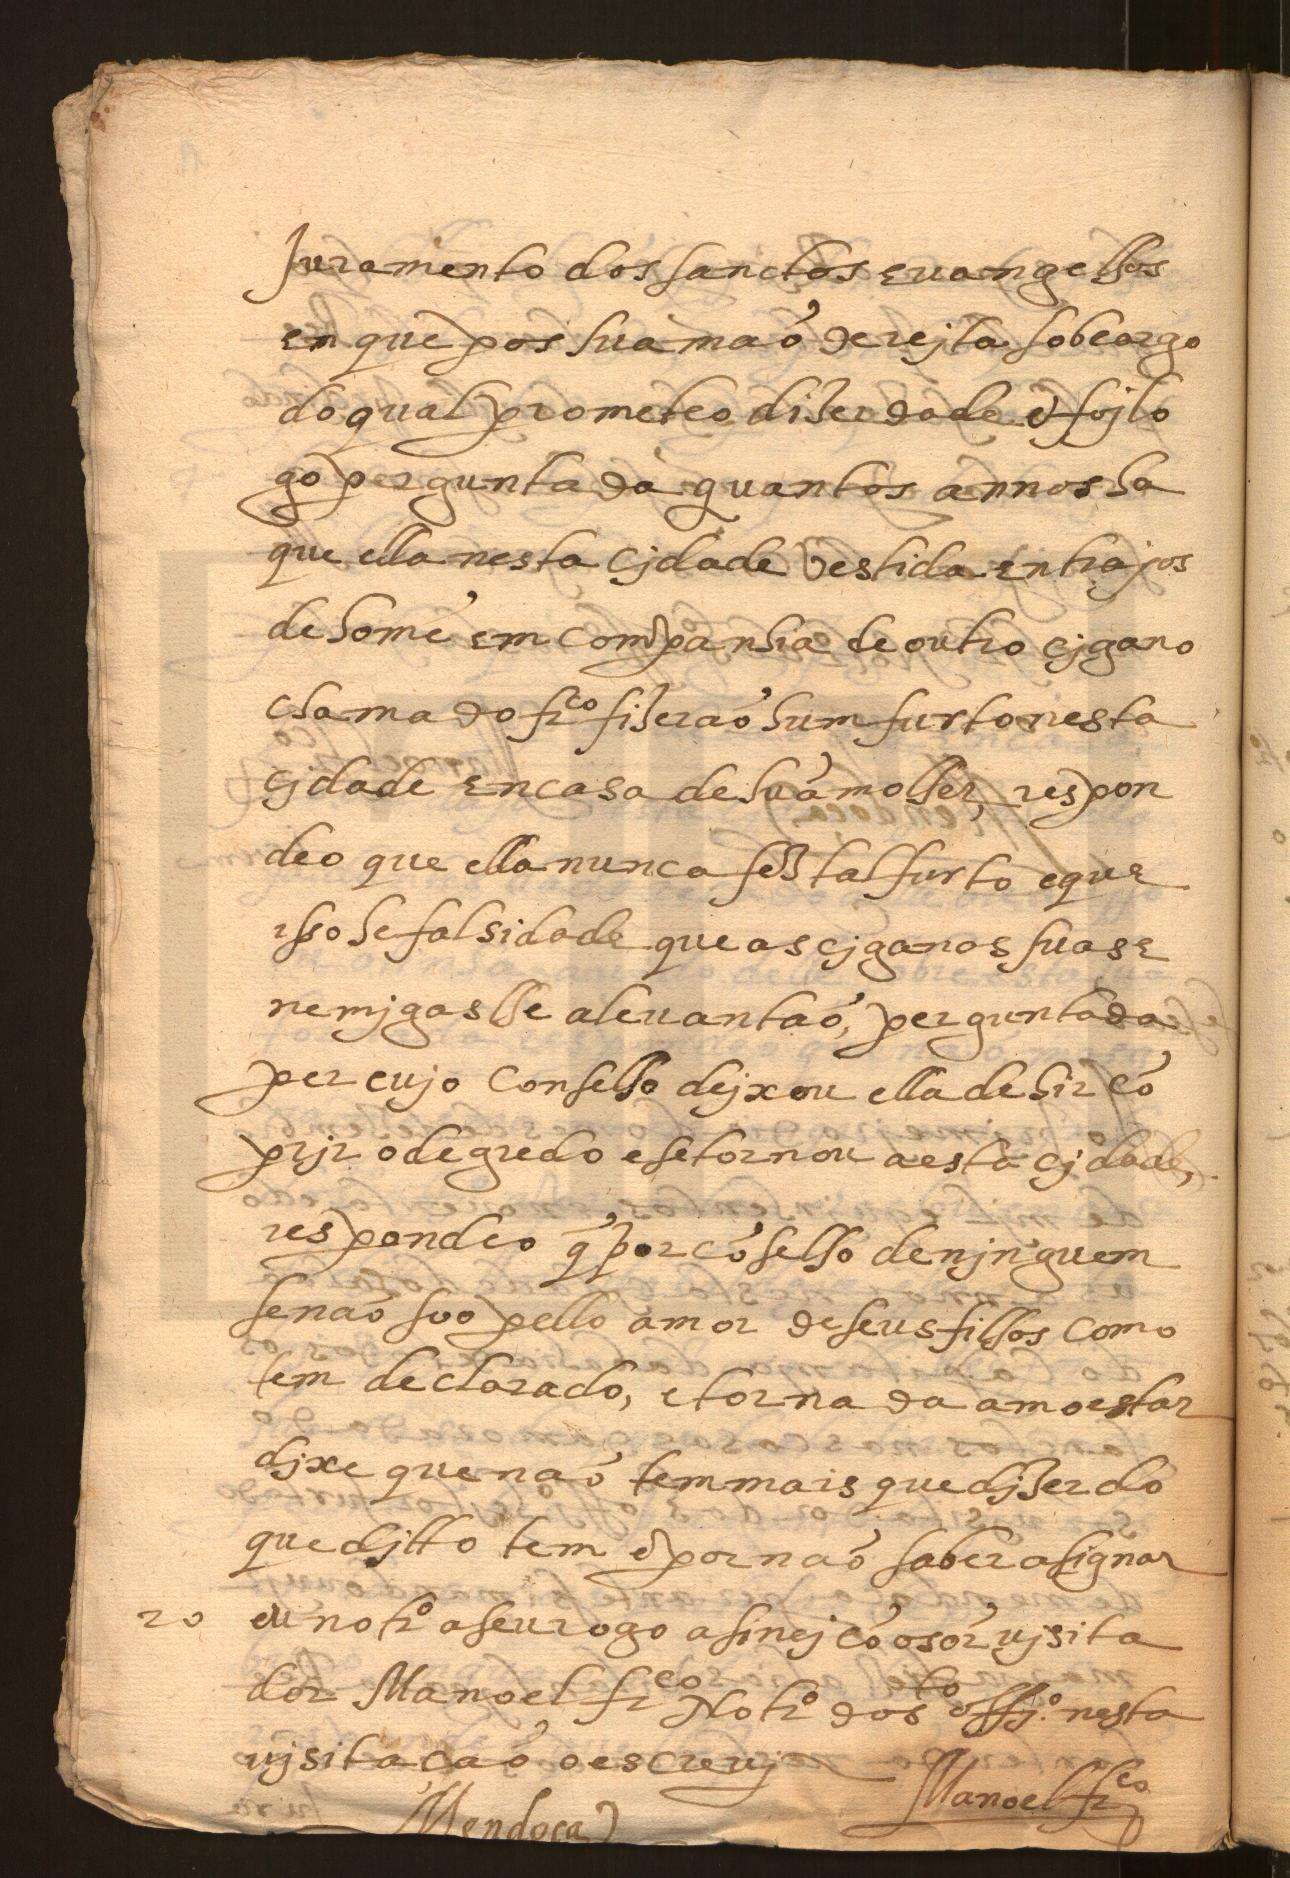 Juramento dos sanctos euangelhos
en que pos sua maõ dereyta sob cargo
do qual prometeo dizer verdade e foj lo
go perguntada quantos annos ha
que ella nesta cjdade vestida en trajos
de homẽ em companhia de outro cjgano
chamado frco fizeraõ hum furto nesta
cjdade en casa de huã molher, respon
deo que ella nunca fez tal furto e que
isso he falsidade que as cjganas suas e
nemjgas lhe aleuantaõ, perguntada
per cujo conselho dejxou ella de hir cõ
prjr o degredo e se tornou a esta cjdade,
respondeo q̃ por cõselho de njnguem
senaõ soo pello amor de seus filhos como
tem declarado, e tornada amoestar
djxe que naõ tem mais que djzer do
que djtto tem e por naõ saber asignar
20 eu notro a seu rogo asinej cõ o sõr vjsita
dor Manoel frco Notro do sto offjo nesta
vjsitaçaõ o escreuj
Mendoça Manoel frco